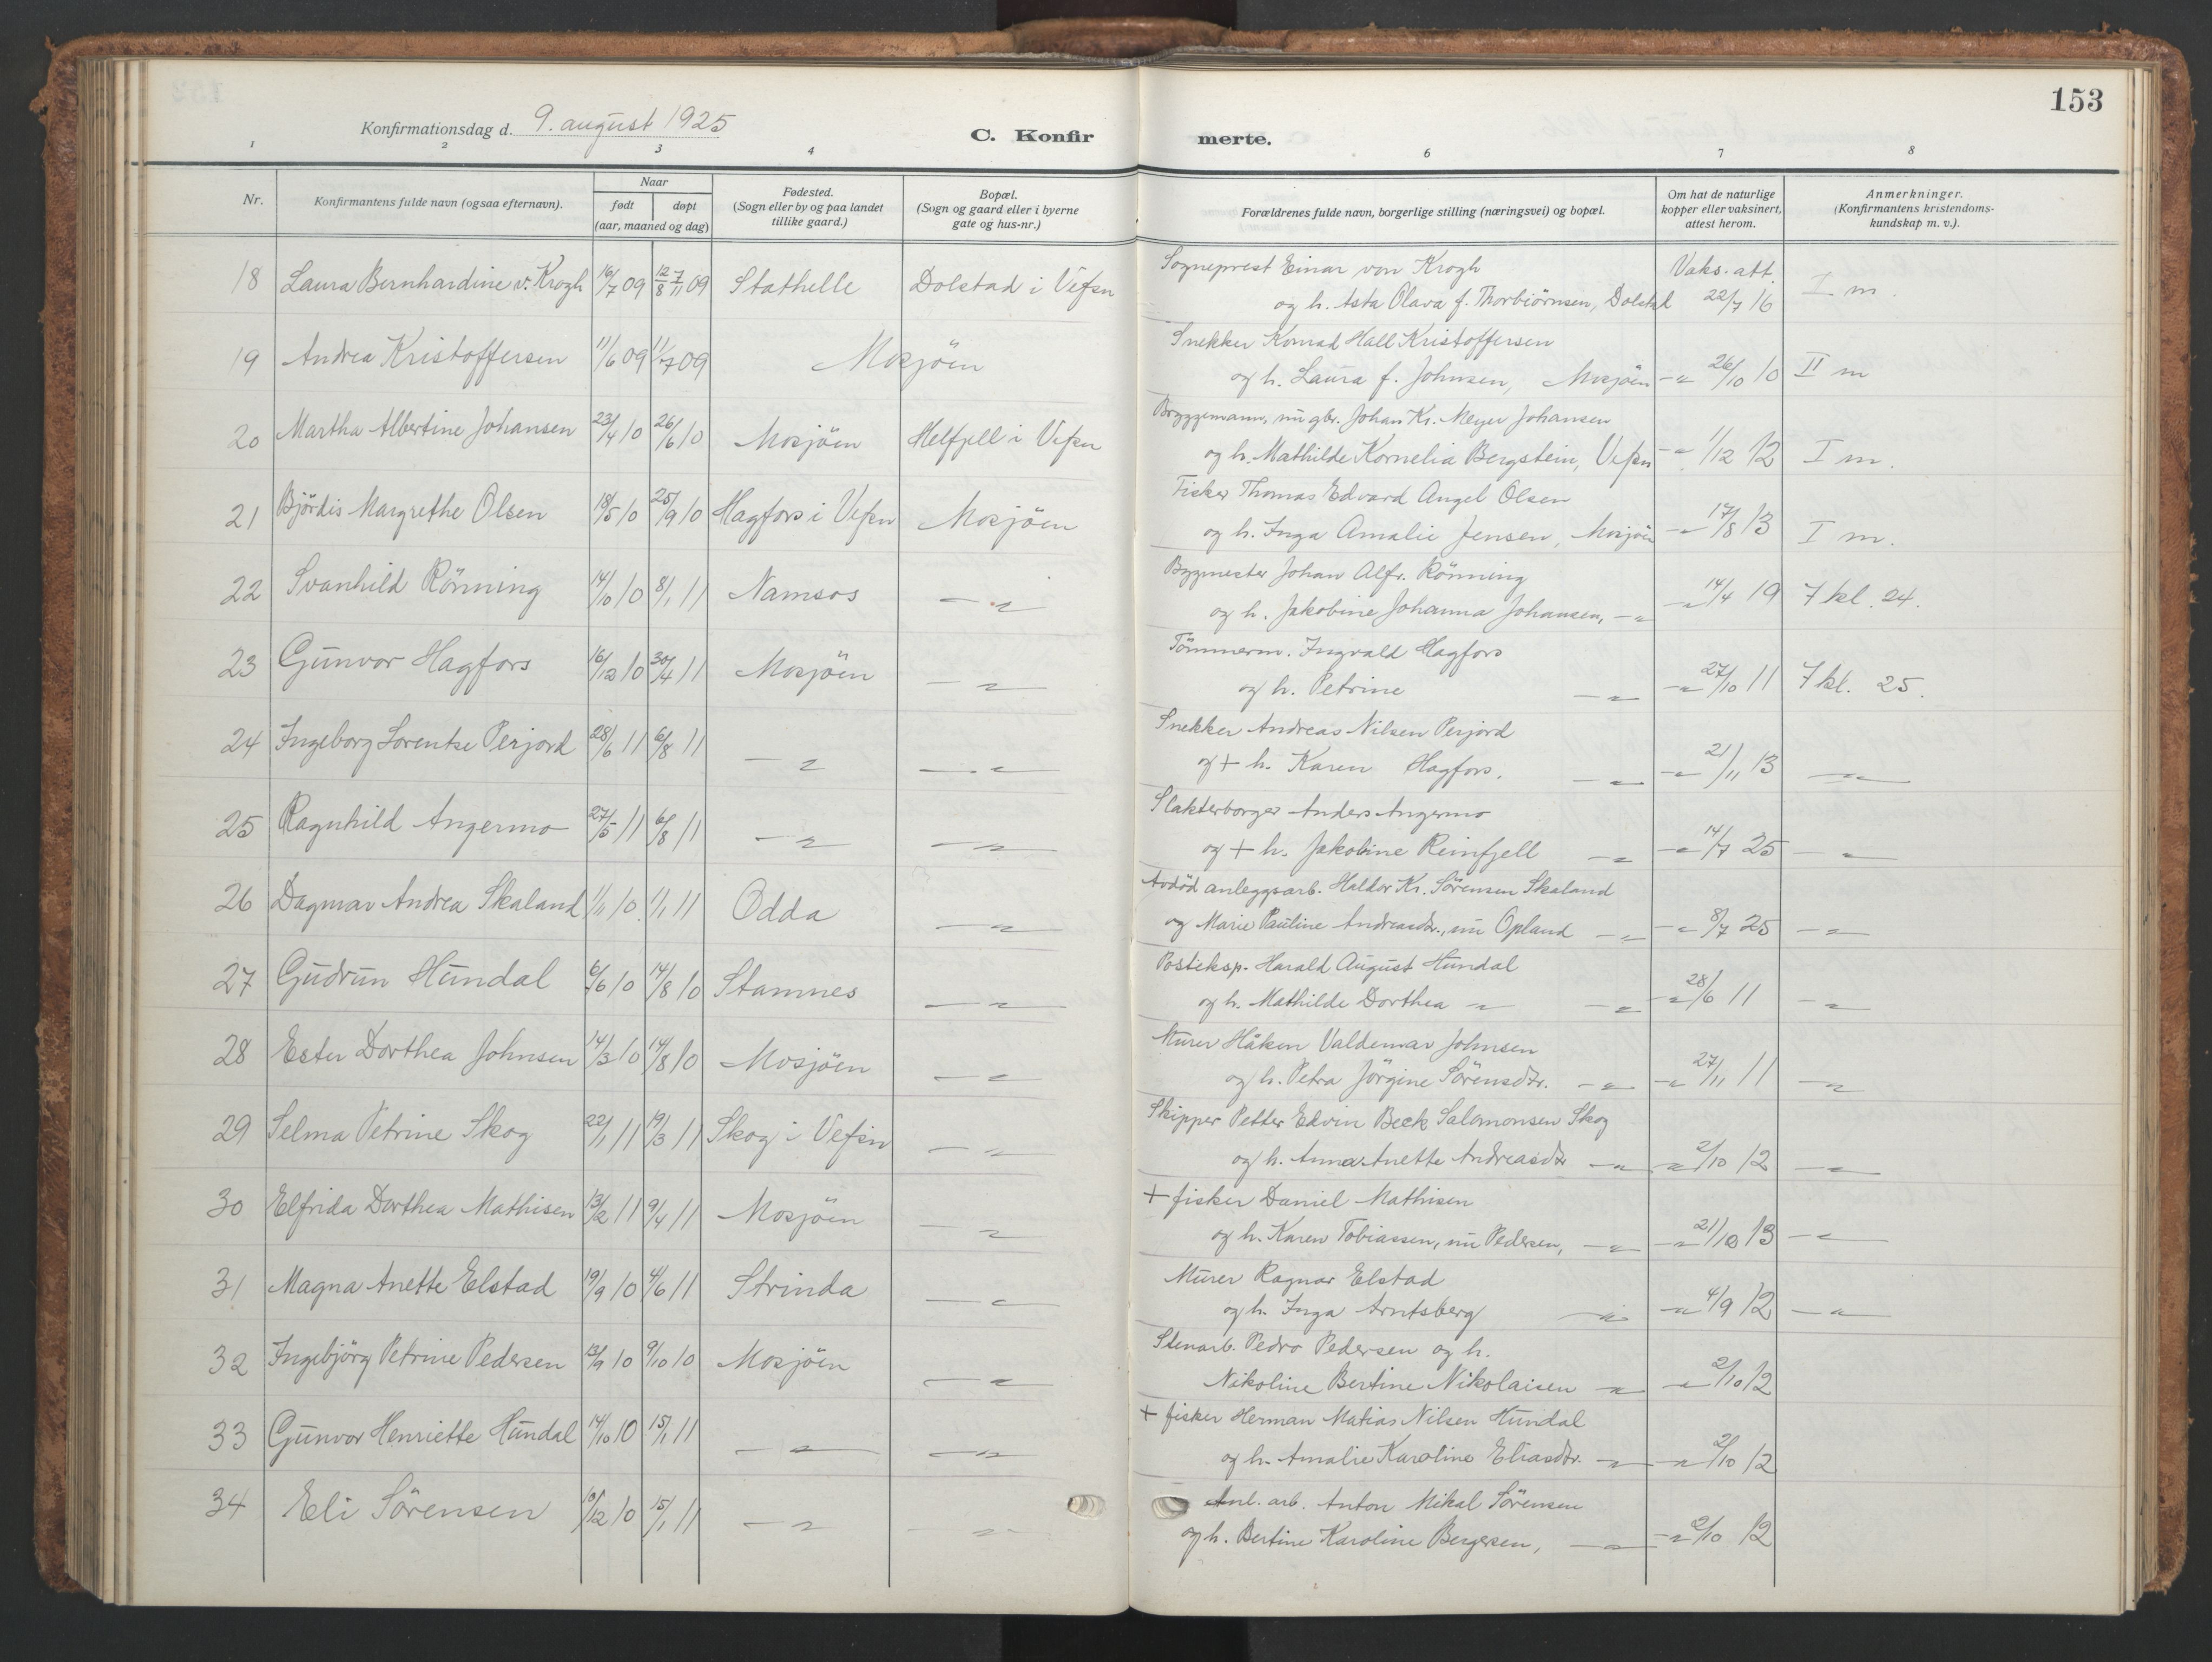 153
Konfirmationsdag d. 9. august 1925
C. Konfir merte.
1 2 3 4 6 7 8
Nr.
Konfirmantens fulde navn (ogsaa efternavn).
Naar
født døpt
(aar, maaned og dag)
Fødested.
(Sogn eller by og paa landet
tillike gaard.)
Bopæl.
(Sogn og gaard eller i byerne
gate og hus-nr.)
Forældrenes fulde navn, borgerlige stilling (næringsvei) og bopæl.
Om hat de naturlige
kopper eller vaksinert,
attest herom.
Anmerkninger.
(Konfirmantens kristendoms-
kundskap m. v.).
18 Laura Bernhardine v. Krogh 16/7 09 12/8 7/11 09 Stathelle Dolstad i Vefsn
Sogneprest Einar von Krogh Vaks. att.
og h. Asta Olava f. Thorbiörnsen, Dolstad 22/7 16 I m.
19 Andrea Kristoffersen 11/6 09 11/7 09 Mosjöen
Snekker Konrad Hall Kristoffersen
og h. Laura f. Johnsen, Mosjöen -"- 26/10 10 II m
20 Martha Albertine Johansen 23/4 10 26/6 10 Mosjöen Helfjell i Vefsn
Bryggemann, nu gbr. Johan Kr. Meyer Johansen
og h. Mathilde Kornelia Bergstein, Vefsn -"- 1/12 12 I m.
21 Björdis Margrethe Olsen 18/5 10 25/9 10 Hagfors i Vefsn Mosjöen
Fisker Thomas Edvard Angel Olsen
og h. Inga Amalie Jensen, Mosjöen -"- 17/8 13 I m.
22 Svanhild Rönning 14/10 10 8/1 11 Namsos -"-
Byggmester Johan Alfr. Rönning
og h. Jakobine Johanna Johansen, -"- -"- 14/4 19 7 kl. 24.
23 Gunvor Hagfors 16/12 10 30/4 11 Mosjöen -"-
Tömmerm. Ingvald Hagfors
og h. Petrine -"- -"- 27/10 11 7 kl. 25.
24 Ingeborg Lorentse Perjord 28/6 11 6/8 11 -"- -"-
Snekker Andreas Nilsen Perjord
og + h. Karen Hagfors. -"- -"- 21/11 13 -"-
25 Ragnhild Angermo 27/5 11 6/8 11 -"- -"-
Slakterborger Anders Angermo
og + h. Jakobine Reinfjell -"- -"- 14/7 25 -"-
26 Dagmar Andrea Skaland 1/11 10. 1/1 11 Odda -"-
Avdöd anleggsarb. Haldor Kr. Sörensen Skaland
og Marie Pauline Andreasdtr., nu Opland -"- -"- 8/7 25 -"-
27 Gudrun Hundal 6/6 10 14/8 10 Stamnes -"-
Posteksp. Harald August Hundal
og h. Mathilde Dorthea -"- -"- -"- 28/6 11 -"-
28 Ester Dorthea Johnsen 14/3 10 14/8 10 Mosjöen -"-
Murer Håkon Valdemar Johnsen
og h. Petra Jörgine Sörensdtr. -"- -"- 27/11 11 -"-
29 Selma Petrine Skog 22/1 11 19/3 11 Skog i Vefsn -"-
Skipper Petter Edvin Beck Salomonsen Skog
og h. Anna Anette Andreasdtr -"- -"- 2/10 12 -"-
30 Elfrida Dorthea Mathisen 13/2 11 9/4 11 Mosjöen -"-
+ fisker Daniel Mathisen
og h. Karen Tobiassen, nu Pedersen, -"- -"- 21/10 13 -"-
31 Magna Anette Elstad 19/9 10 4/6 11 Strinda -"-
Murer Ragnar Elstad
og h. Inga Arntsberg -"- -"- 4/9 12 -"-
32 Ingebjörg Petrine Pedersen 13/9 10 9/10 10 Mosjöen -"-
Stenarb. Pedro Pedersen og h.
Nikoline Bertine Nikolaisen -"- -"- 2/10 12
33 Gunvor Henriette Hundal 14/10 10 15/1 11 -"- -"-
+ fisker Herman Matias Nilsen Hundal
og h. Amalie Karoline Eliasdtr. -"- -"- 2/10 12
34 Eli Sörensen 10/12 10 15/1 11 -"- -"-
Anl. arb. Anton Mikal Sörensen
og h. Bertine Karoline Bergersen, -"- -"- 2/10 12